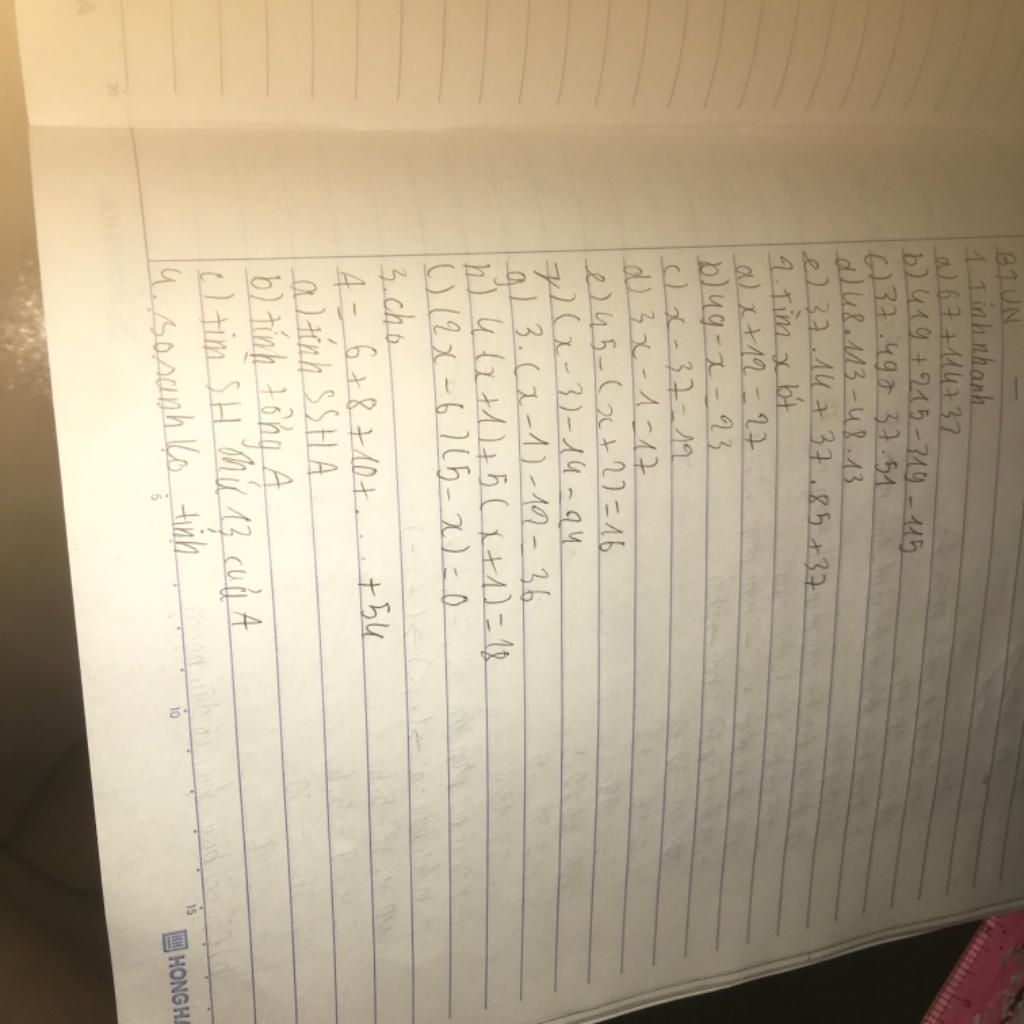 BTVN:
1. Tính nhanh
a) 67 + 114 + 37
b) 419 + 215 - 319 - 115
c) 37.49 + 37.51
d) 48.113 - 48.13
e) 37.14 + 37.85 + 37
2. Tìm x bt
a) x + 12 = 27
b) 49 - x = 23
c) x - 37 = 12
d) 3x - 1 = 17
e) 45 - (x + 2) = 16
7) (x - 3) - 14 = 24
g) 3.(x - 1) - 12 = 36
h) 4(x + 1) + 5(x + 1) = 18
(2x - 6)(5 - x) = 0
3. cho
A = 6 + 8 + 10 + .... + 54
a) tính SSH A
b) tính tổng A
c) tìm SH thứ 13 của A
4. so sánh ko tính
5
10
15
HONG HA
20